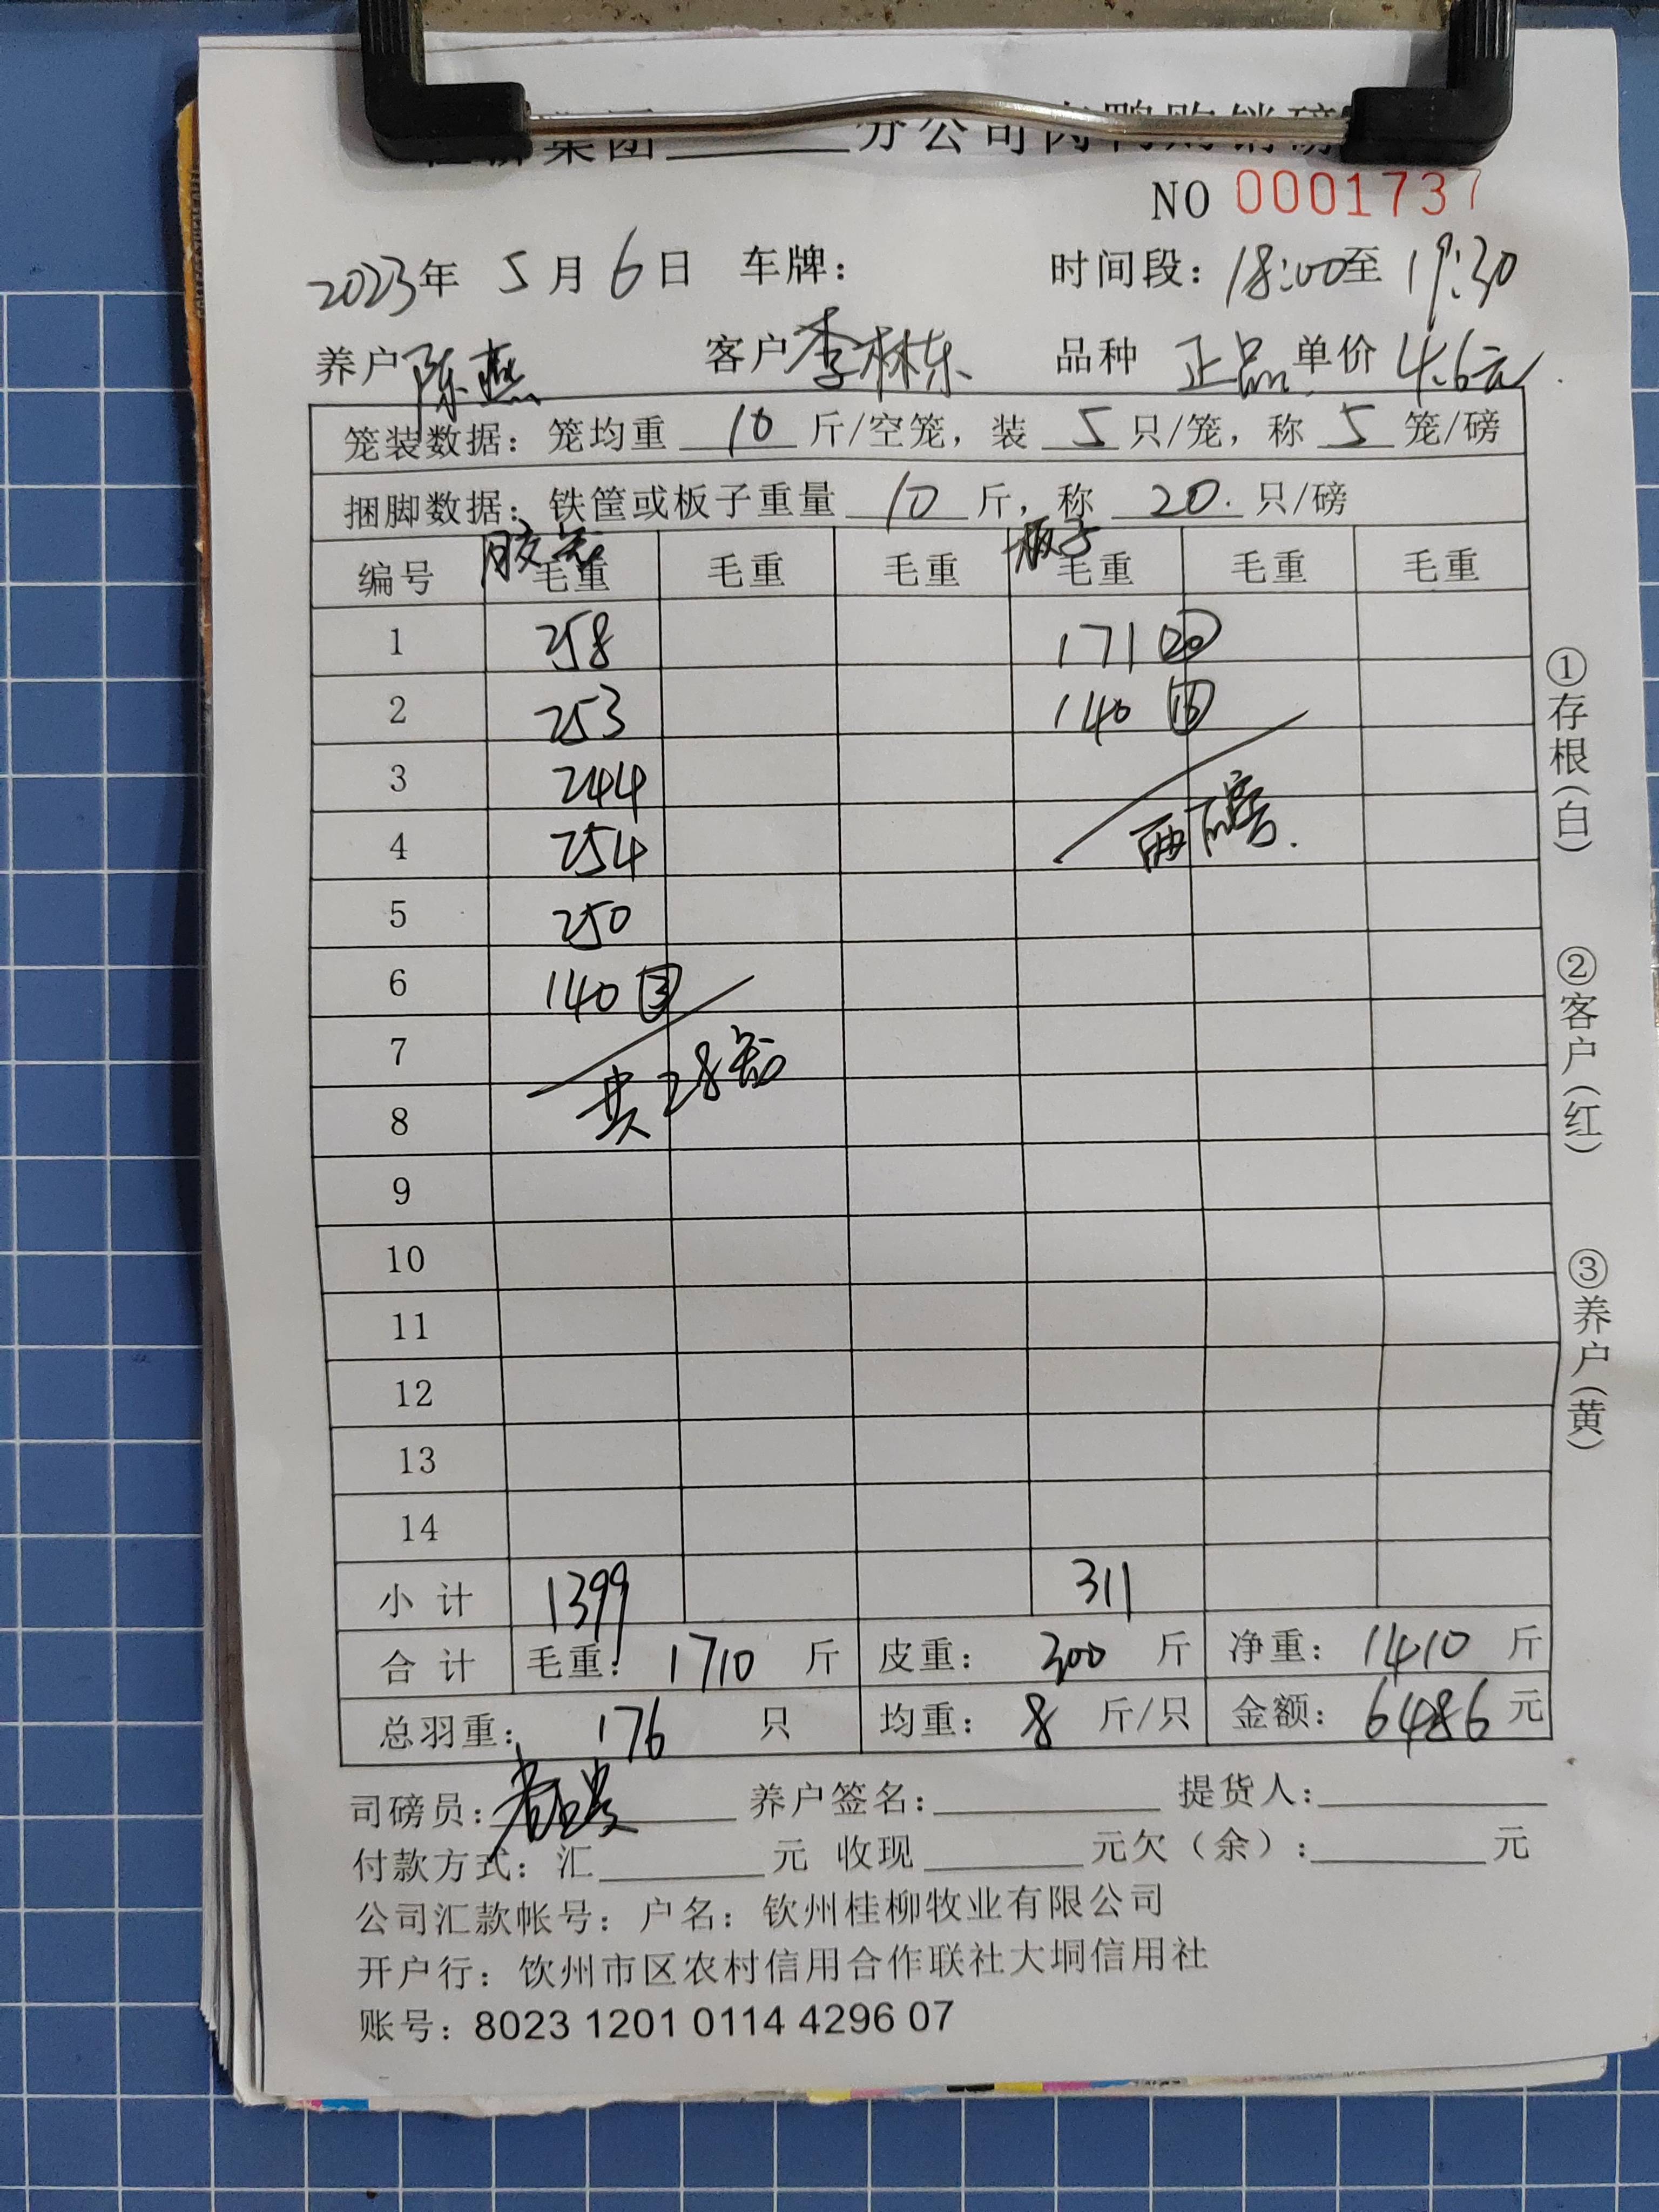 集团______分公司肉鸭购销磅
NO 0001737
2023年 5月6日 车牌: 时间段: 18:00至 19:30
养户 陈燕 客户 李林东 品种 正品 单价 4.6元
笼装数据: 笼均重 10 斤/空笼, 装 5 只/笼, 称 5 笼/磅
捆脚数据: 铁筐或板子重量 10 斤, 称 20. 只/磅
胶笼 板子
编号 毛重 毛重 毛重 毛重 毛重 毛重
1 258 171 20
2 253 140 16
3 244
4 254 两磅.
5 250
6 140 3
7 共28笼
8
9
10
11
12
13
14
小 计 1399 311
合 计 毛重: 1710 斤 皮重: 300 斤 净重: 1410 斤
总羽重: 176 只 均重: 8 斤/只 金额: 6486 元
司磅员: 养户签名:______ 提货人:______
付款方式: 汇______元 收现______元欠（余）:______元
公司汇款帐号: 户名: 钦州桂柳牧业有限公司
开户行: 钦州市区农村信用合作联社大垌信用社
账号: 8023 1201 0114 4296 07
①存根(白)
②客户(红)
③养户(黄)